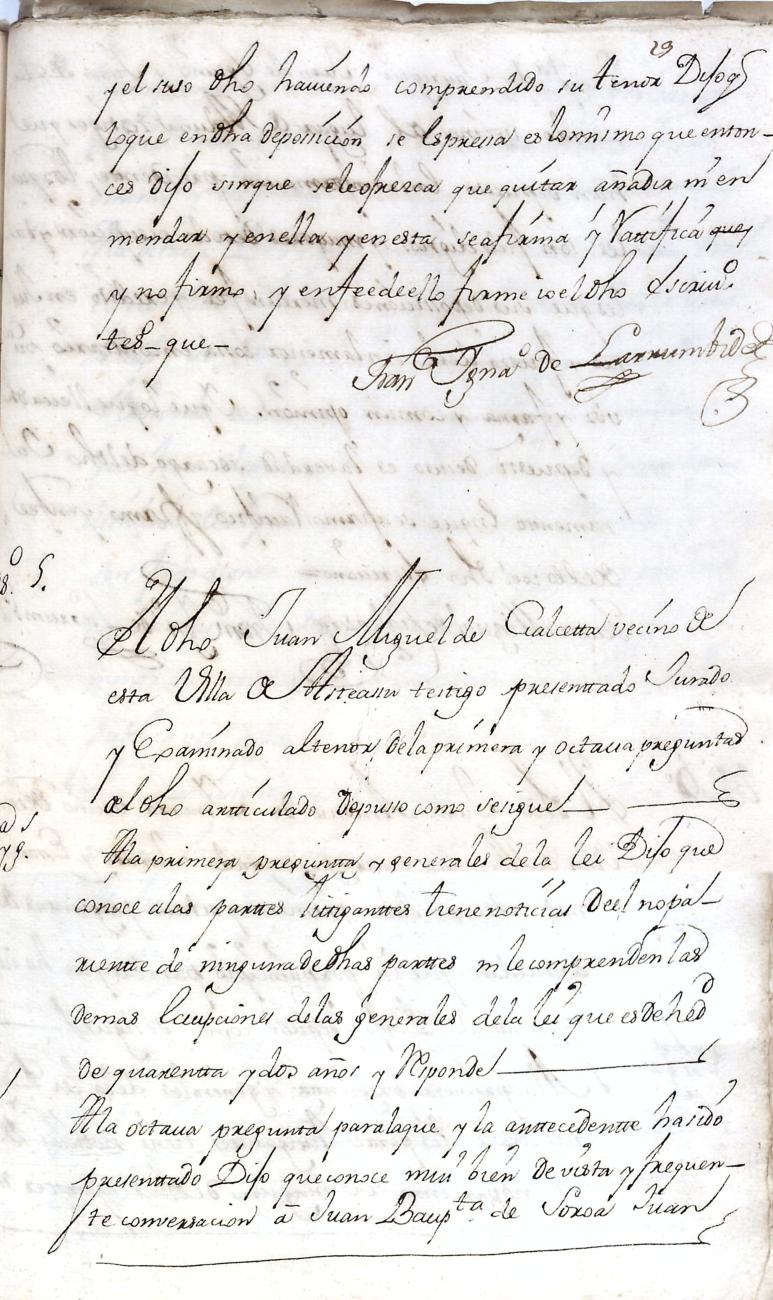 29
y el suso dho haviendo comprendido su tenor Dijo q̃
loque en dha deposicion se Espressa es lo mismo que enton-
ces dijo sinque sele ofrezca que quitar añadir ni en
mendar y enella y en esta se afirma y Rattifica que
y no firmo, y en fee de ello firme io el dho Escriu.º
tes-que-
Juan Ignaº de Larrumbide
5.
El dho Juan Miguel de Calcetta vecino de
esta Villa de Asteasu testigo presenttado Jurado
y Examinado altenor dela primera y octaua preguntas
del dho artticulado depusso como se sigue
Ala primera preguntta y generales de la lei Dijo que
conoce alas parttes littiganttes tiene noticias de el no pa-
rientte de ninguna de dhas parttes ni le comprenden las
demas Excupciones delas generales dela lei que es de hedd
de quarentta y dos años y Responde
Ala octaua pregunta paralaque y la anttecedentte ha sido
presenttado Dijo queconoce mui bien de vista y frequen-
te conversacion â Juan Bauptta. de Soroa Juan